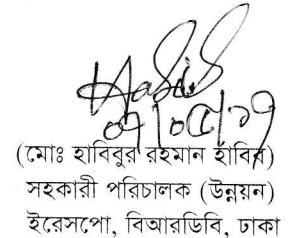 ০৭/০৫/১৭
(মোঃ হাবিবুর রহমান হাবিব)
সহকারী পরিচালক (উন্নয়ন)
ইরেসপো, বিআরডিবি, ঢাকা